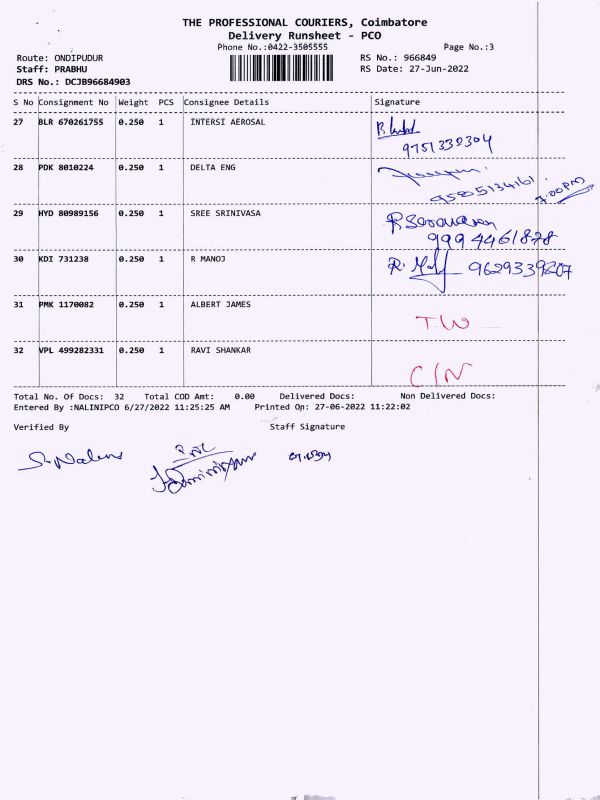 THE PROFESSIONAL COURIERS, Coimbatore
Delivery Runsheet - PCO
Phone No.:0422-3505555 Page No.:3
Route: ONDIPUDUR RS No.: 966849
Staff: PRABHU RS Date: 27-Jun-2022
DRS No.: DCJB96684903
S No Consignment No Weight PCS Consignee Details Signature
27 BLR 670261755 0.250 1 INTERSI AEROSAL
9751339304
28 PDK 8010224 0.250 1 DELTA ENG
9585134161
7.00 PM
29 HYD 80989156 0.250 1 SREE SRINIVASA
R Saravanan
9994461878
30 KDI 731238 0.250 1 R MANOJ
9629339207
31 PMK 1170082 0.250 1 ALBERT JAMES
TW
32 VPL 499282331 0.250 1 RAVI SHANKAR
C/N
Total No. Of Docs: 32 Total COD Amt: 0.00 Delivered Docs: Non Delivered Docs:
Entered By :NALINIPCO 6/27/2022 11:25:25 AM Printed On: 27-06-2022 11:22:02
Verified By Staff Signature